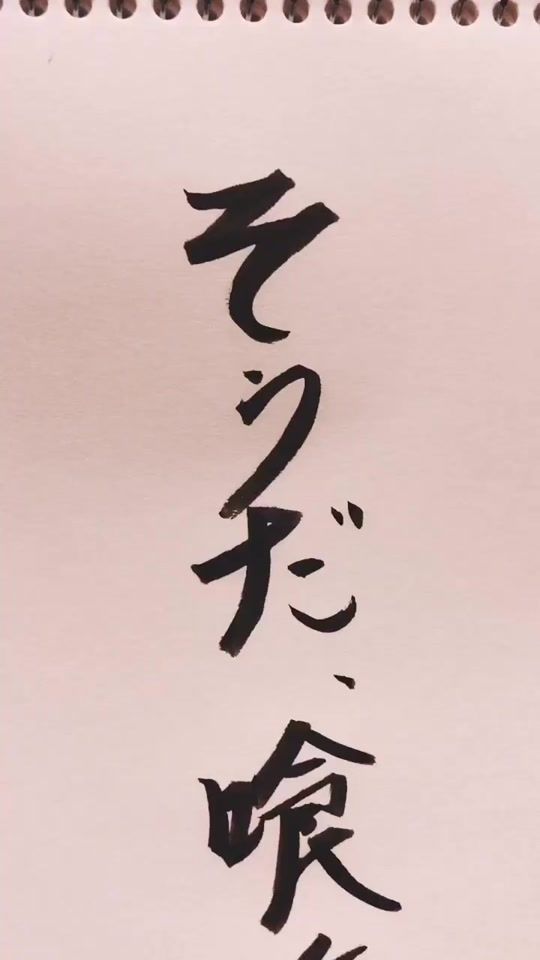 そうだ、喰